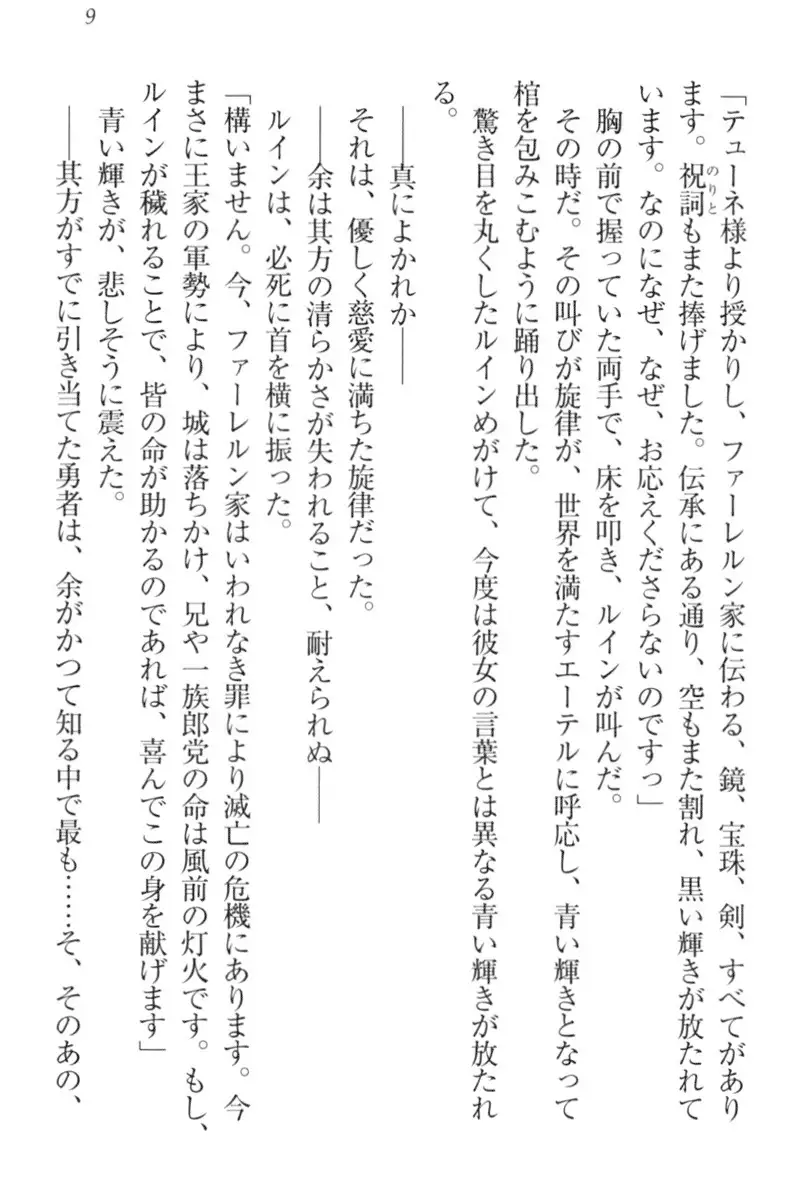 9
「テューネ様より授かりし、ファーレルン家に伝わる、鏡、宝珠、剣、すべてがあり
ます。祝詞もまた捧げました。伝承にある通り、空もまた割れ、黒い輝きが放たれて
のりと
います。なのになぜ、なぜ、お応えくださらないのですっ」
胸の前で握っていた両手で、床を叩き、ルインが叫んだ。
その時だ。その叫びが旋律が、世界を満たすエーテルに呼応し、青い輝きとなって
棺を包みこむように踊り出した。
驚き目を丸くしたルインめがけて、今度は彼女の言葉とは異なる青い輝きが放たれ
る。
――真によかれか――
それは、優しく慈愛に満ちた旋律だった。
――余は其方の清らかさが失われること、耐えられぬ――
ルインは、必死に首を横に振った。
「構いません。今、ファーレルン家はいわれなき罪により滅亡の危機にあります。今
まさに王家の軍勢により、城は落ちかけ、兄や一族郎党の命は風前の灯火です。もし、
ルインが穢れることで、皆の命が助かるのであれば、喜んでこの身を献げます」
青い輝きが、悲しそうに震えた。
――其方がすでに引き当てた勇者は、余がかつて知る中で最も……そ、そのあの、